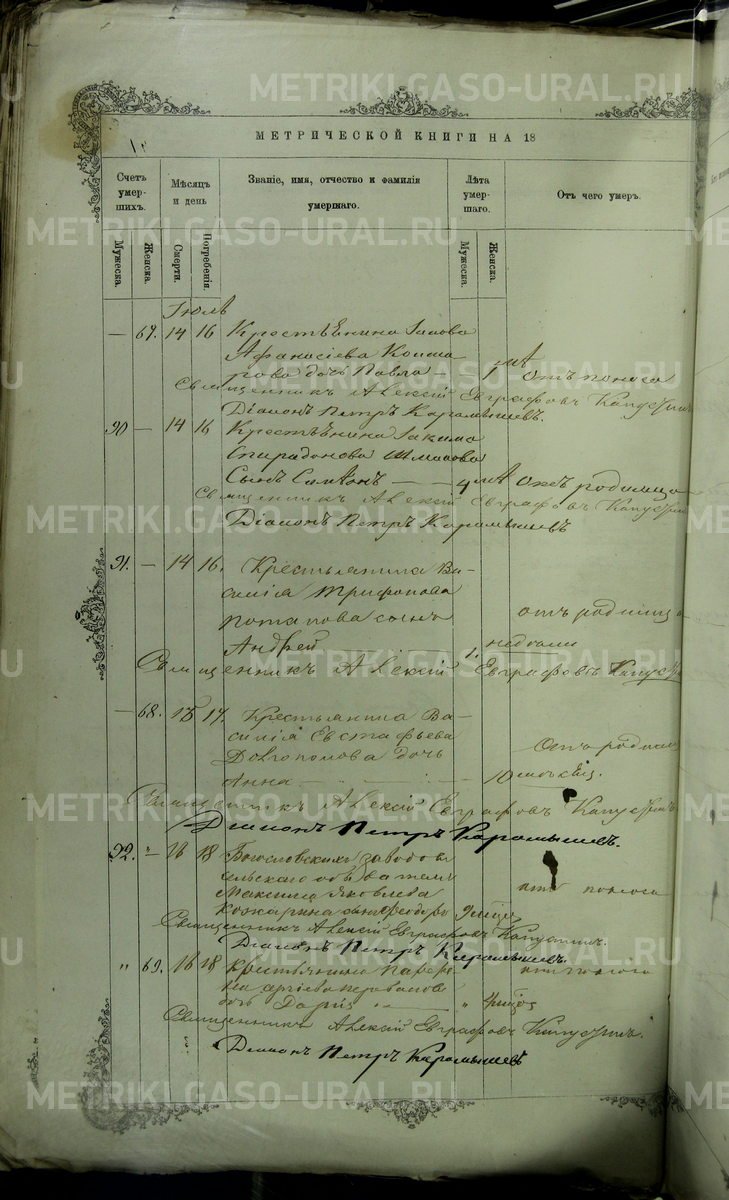 МЕТРИЧЕСКОЙ КНИГИ НА 18
Счетъ умершихъ.
Мѣсяцъ и день
Званіе, имя, отчество и фамилія умершаго.
Лѣта умершаго.
Отъ чего умеръ.
Мужеска.
Женска.
Смерти.
Погребенія.
Мужеска.
Женска.
Іюль
— 67. 14 16 Крестьянина
Афанасіева
дочь Павла — 1 лѣт отъ поноса
Священникъ Алексій Евграфовъ Капустинъ
Діаконъ Петръ Карамышевъ.
90 — 14 16 Крестьянина Іакима
Спиридонова
Сынъ Симеонъ — 4 лѣт отъ родимца
Священникъ Алексій Евграфовъ
Діаконъ Петръ Карамышевъ
91. — 14 16. Крестьянина Ва-
силія Трифонова
Потапова сынъ отъ родимца
Андрей 1. недѣли
Священникъ Алексій Евграфовъ
— 68. 15 17. Крестьянина Ва-
силія Евстафьева
Долгополова дочь Отъ
Анна — 10 мѣсяц.
Священникъ Алексій Евграфовъ Капустинъ
Діаконъ Петръ Карамышевъ.
92. " — 16 18 Богословскихъ заводовъ
сельскаго обывателя
Максима Яковлева отъ поноса
Кожарина сынъ Ѳеодоръ
Священникъ Алексій Евграфовъ Капустинъ.
Діаконъ Петръ Карамышевъ.
" 69. 16 18 Крестьянина отъ поноса
дочь Дарія — "
Священникъ Алексій Евграфовъ Капустинъ.
Діаконъ Петръ Карамышевъ
METRIKI.GASO-URAL.RU